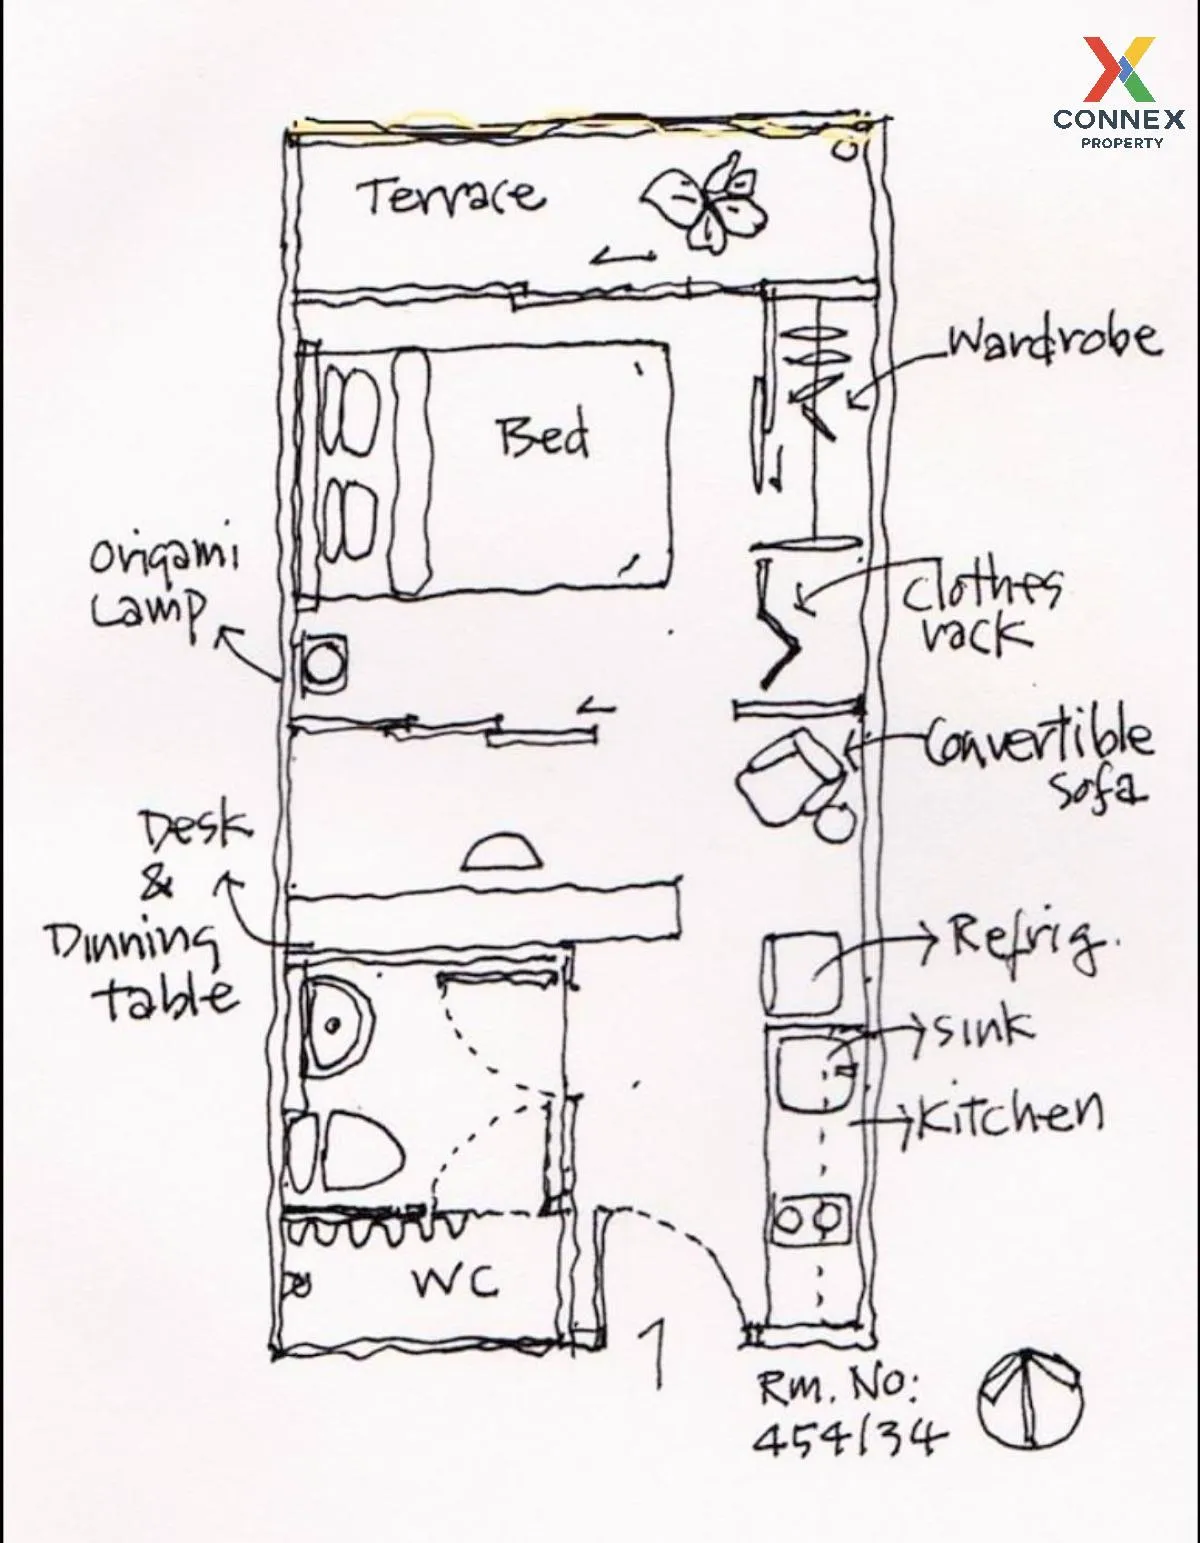 CONNEX
PROPERTY
Terrace
Wardrobe
Bed
Origami
Lamp
Clothes
rack
Convertible
sofa
Desk
&
Dinning
table
Refrig.
sink
Kitchen
WC
1
Rm. No:
454/34